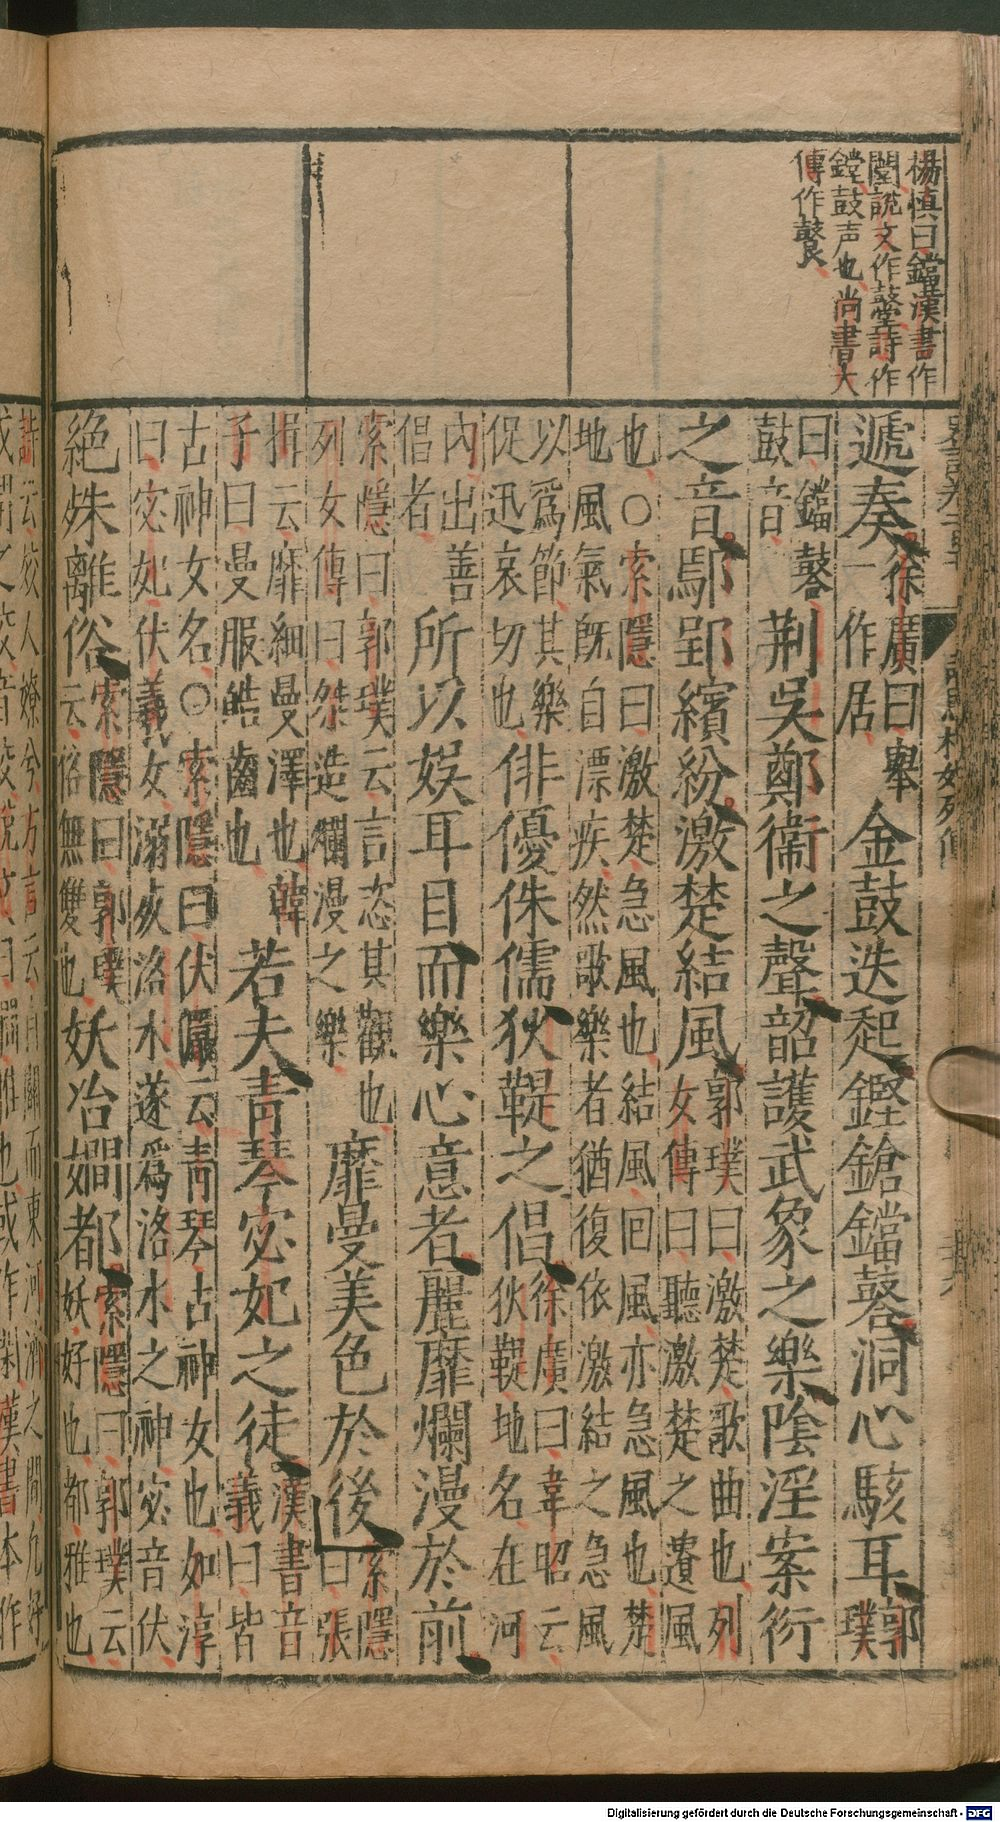 楊慎曰鐺漢書作
闛說文作鼞詩作
鏜鼓声也尚書大
傳作鼚
遞奏徐廣曰舉一作居金鼓迭起鏗鎗鐺鼛洞心駭耳郭璞
曰鐺鼛鼓音荆吳鄭衛之聲韶護武象之樂陰淫案衍
之音鄢郢繽紛激楚結風郭璞曰激楚歌曲也列女傳曰聽激楚之遺風
也○索隱曰激楚急風也結風回風亦急風也楚
地風氣既自漂疾然歌樂者猶復依激結之急風
以爲節其樂促迅哀切也俳優侏儒狄鞮之倡徐廣曰韋昭云狄鞮地名在河
內出善倡者所以娛耳目而樂心意者麗靡爛漫於前
索隱曰郭璞云言恣其觀也列女傳曰桀造爛漫之樂靡曼美色於後索隱曰張
揖云靡細曼澤也韓子曰曼服皓齒也若夫青琴宓妃之徒漢書音義曰皆
古神女名○索隱曰伏儼云青琴古神女也如淳
曰宓妃伏義女溺死洛水遂爲洛水之神宓音伏
絕殊離俗索隱曰郭璞云俗無雙也妖冶嫺都索隱曰郭璞云妖好也都雅也
詩云姣人嫽兮方言云自關而東河濟之間凡好
Digitalisierung gefördert durch die Deutsche Forschungsgemeinschaft - DFG